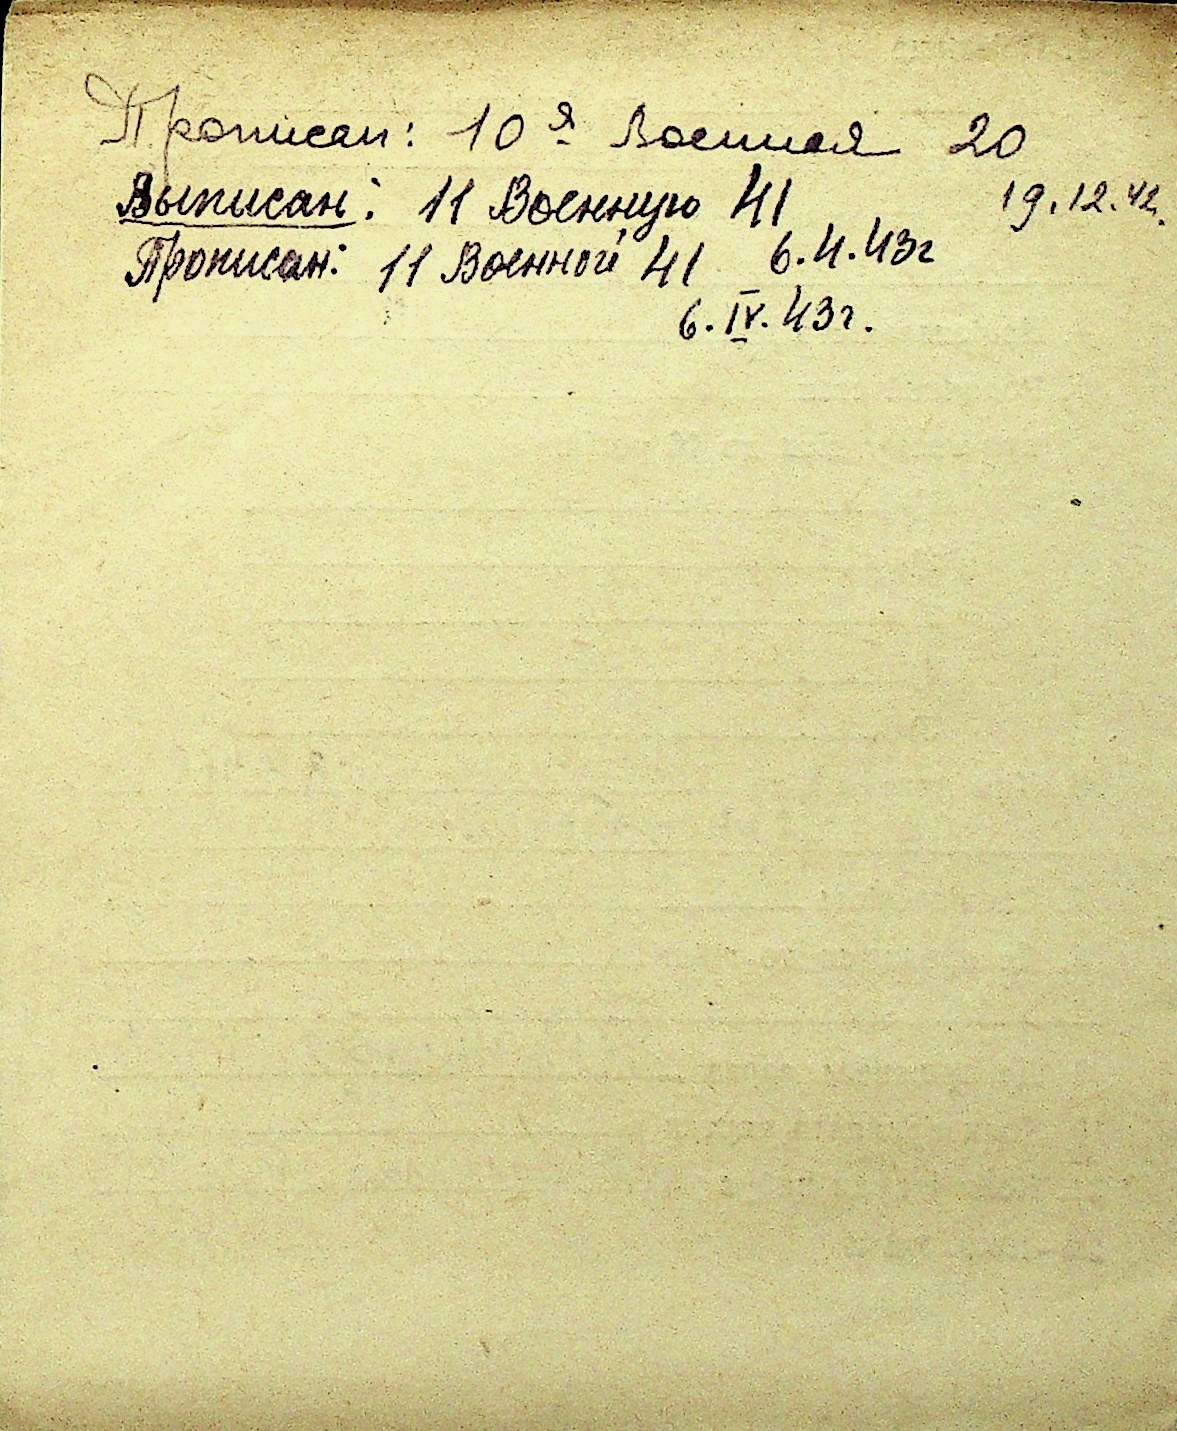 Прописан: 10я Военная 20
19.12.42.
Выписан: 11 Военную 41
Прописан: 11 Военной 41 6.4.43г
6.IV.43г.